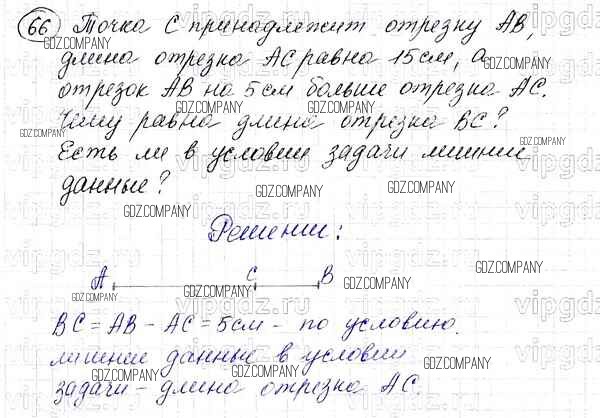 66 Точка С принадлежит отрезку АВ,
длина отрезка АС равна 15см, а
отрезок АВ на 5см больше отрезка АС.
Чему равна длина отрезка ВС?
Есть ли в условии задачи лишние
данные?
Решение:
А С В
ВС = АВ − АС = 5см − по условию.
лишние данные в условии
задачи − длина отрезка АС.